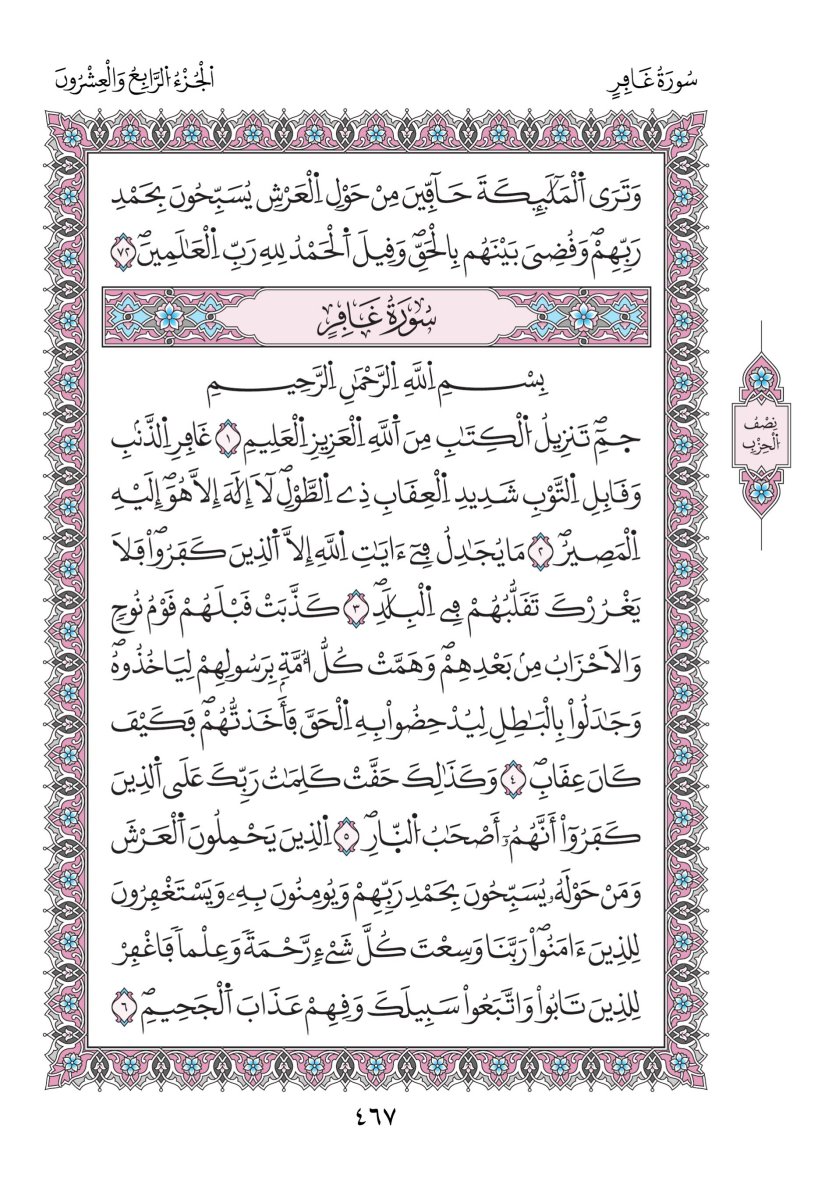 سُورَةُ غَافِرٍ
اَلْجُزْءُ الرَّابِعُ وَالْعِشْرُونَ
وَتَرَى اَلْمَلَٰٓئِكَةَ حَآفِّينَ مِنْ حَوْلِ اِلْعَرْشِ يُسَبِّحُونَ بِحَمْدِ
رَبِّهِمْۖ وَقُضِىَ بَيْنَهُم بِالْحَقِّۖ وَقِيلَ اَلْحَمْدُ لِلهِ رَبِّ اِلْعَٰلَمِينَۖ ٧٢
سُورَةُ غَافِرٍ
بِسْمِ اِللَّهِ اِلرَّحْمَٰنِ اِلرَّحِيمِ
حمِٓۖ تَنزِيلُ اُلْكِتَٰبِ مِنَ اَللَّهِ اِلْعَزِيزِ اِلْعَلِيمِ ١ غَافِرِ اِلذَّنۢبِ
وَقَابِلِ اِلتَّوْبِ شَدِيدِ اِلْعِقَابِ ذِے اِلطَّوْلِۖ لَآ إِلَٰهَ إِلَّا هُوَۖ إِلَيْهِ
اِلْمَصِيرُۖ ٢ مَا يُجَٰدِلُ فِےٓ ءَايَٰتِ اِللَّهِ إِلَّا اَلذِينَ كَفَرُواْ فَلَا
يَغْرُرْكَ تَقَلُّبُهُمْ فِے اِلْبِلَٰدِۖ ٣ كَذَّبَتْ قَبْلَهُمْ قَوْمُ نُوحٍ
وَالَاحْزَابُ مِنۢ بَعْدِهِمْۖ وَهَمَّتْ كُلُّ أُمَّةِۢ بِرَسُولِهِمْ لِيَاخُذُوهُۖ
وَجَٰدَلُواْ بِالْبَٰطِلِ لِيُدْحِضُواْ بِهِ اِلْحَقَّ فَأَخَذتُّهُمْۖ فَكَيْفَ
كَانَ عِقَابِۖ ٤ وَكَذَٰلِكَ حَقَّتْ كَلِمَٰتُ رَبِّكَ عَلَى اَلذِينَ
كَفَرُوٓاْ أَنَّهُمُۥٓ أَصْحَٰبُ اُلنّ۪ارِۖ ٥ اِلذِينَ يَحْمِلُونَ اَلْعَرْشَ
وَمَنْ حَوْلَهُۥ يُسَبِّحُونَ بِحَمْدِ رَبِّهِمْ وَيُومِنُونَ بِهِۦ وَيَسْتَغْفِرُونَ
لِلذِينَ ءَامَنُواْۖ رَبَّنَا وَسِعْتَ كُلَّ شَےْءٖ رَّحْمَةٗ وَعِلْماٗ فَاغْفِرْ
لِلذِينَ تَابُواْ وَاتَّبَعُواْ سَبِيلَكَ وَقِهِمْ عَذَابَ اَلْجَحِيمِۖ ٦
نِصْفُ
اَلْحِزْبِ
٤٦٧